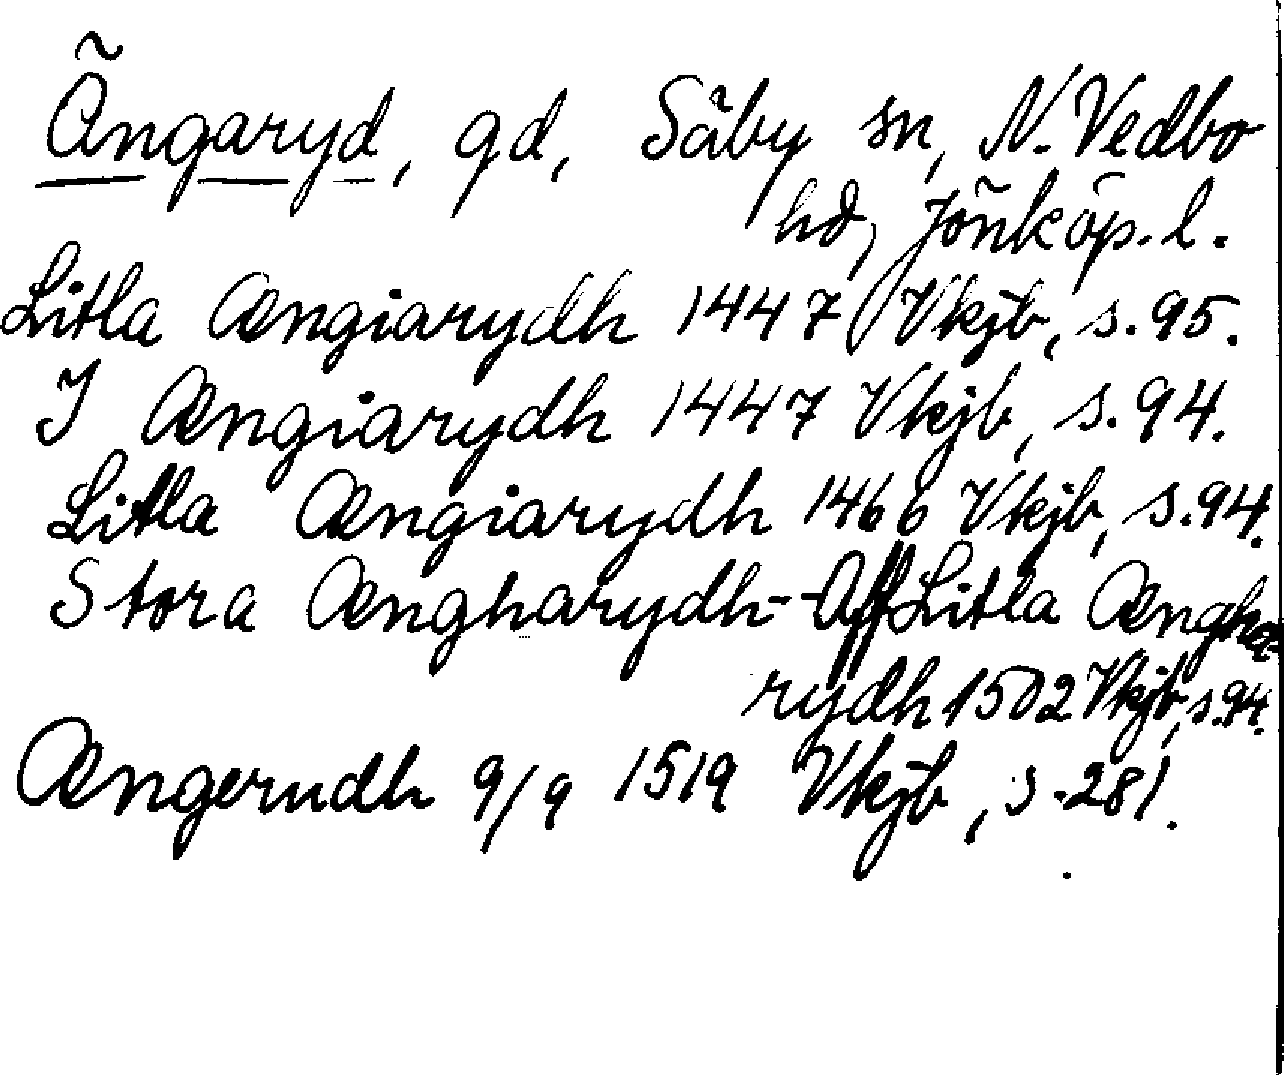 Ängaryd, gd, Säby sn, N. Vedbo
hd, Jönköp. l.
Litla Ængiarydh 1447 Vkjb, s. 95.
J Ængiarydh 1447 Vkjb, s. 94.
Litla Ængiarydh 1466 Vkjb, s. 94.
Stora Ængharydh - - Aff Litla Ængha-
rydh 1502 Vkjb, s. 94.
Ængerudh 9/9 1519 Vkjb, s. 281.